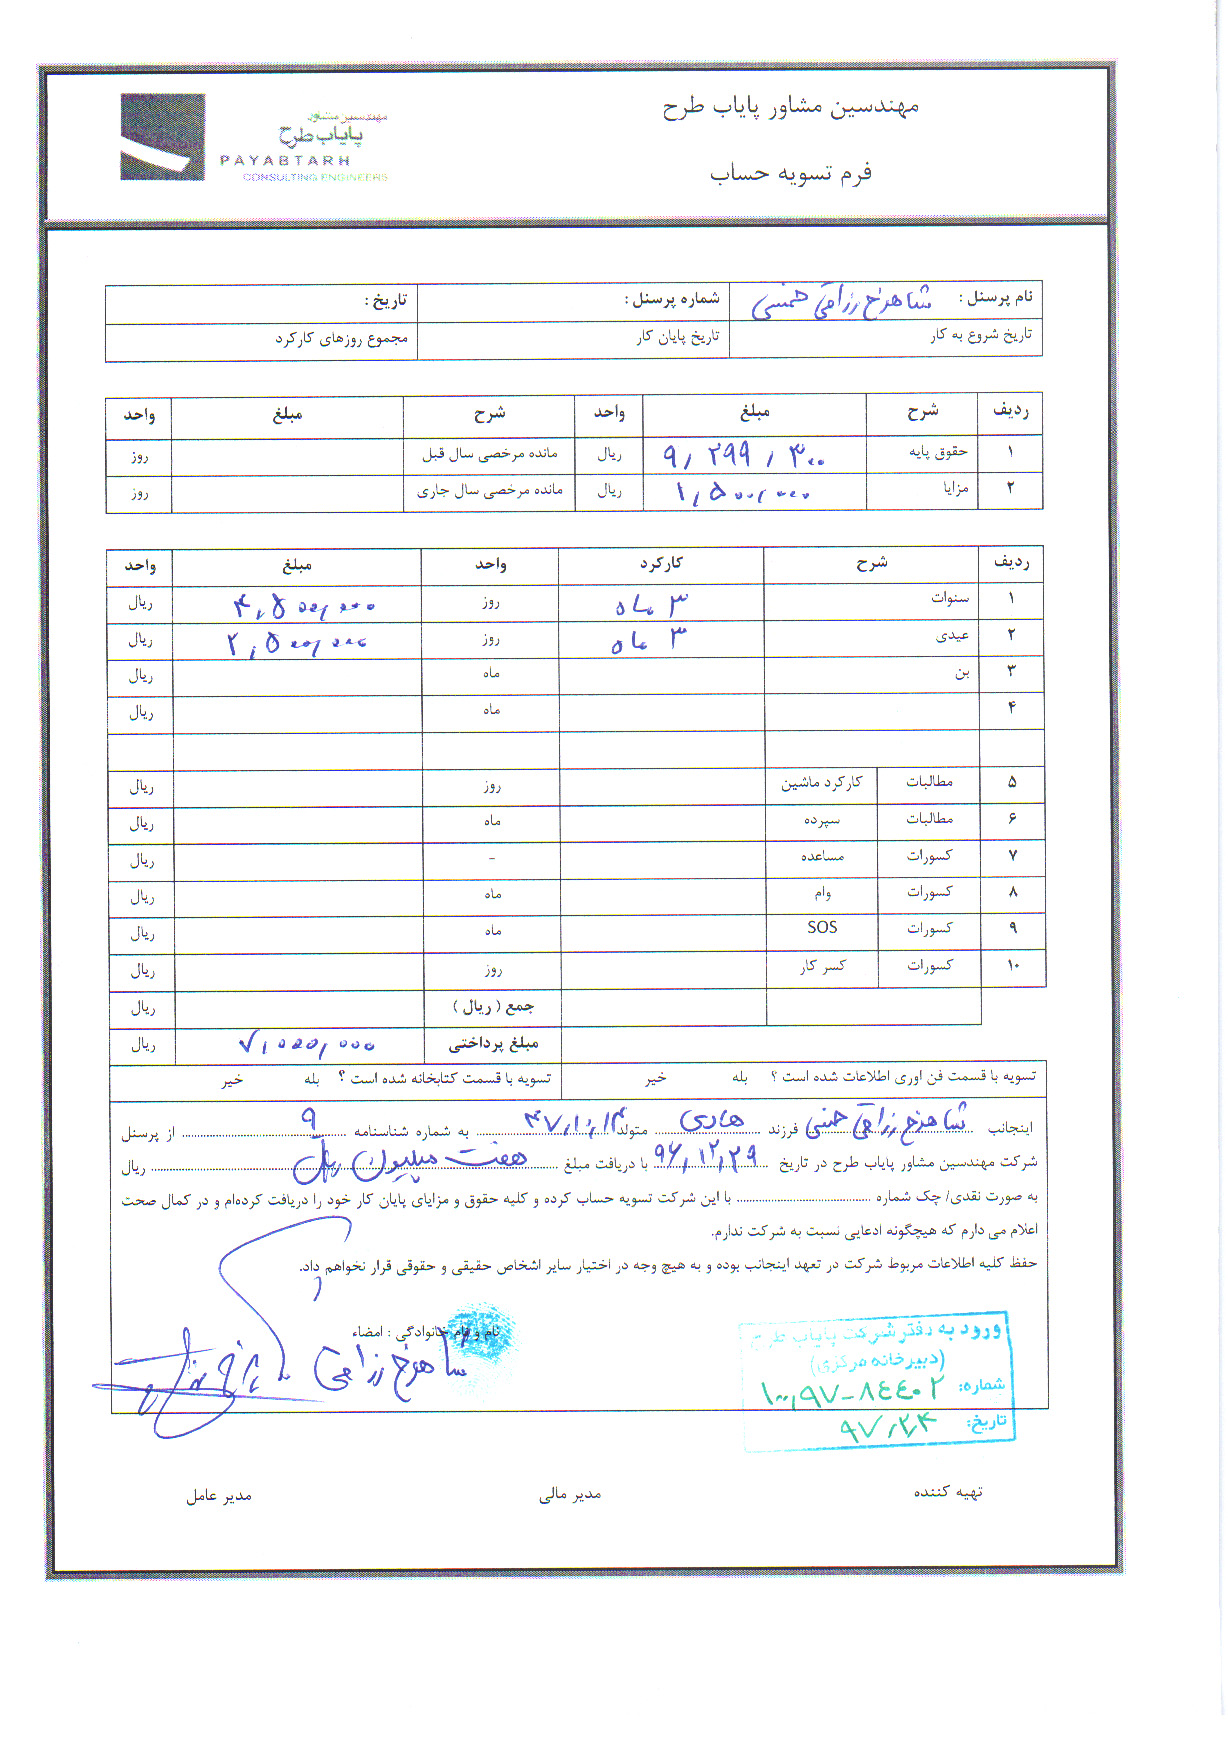 مهندسین مشاور پایاب طرح
مهندسین مشاور
پایاب طرح
PAYABTARH
CONSULTING ENGINEERS
فرم تسویه حساب
نام پرسنل : شاهرخ رزاقی خمسی شماره پرسنل : تاریخ :
تاریخ شروع به کار تاریخ پایان کار مجموع روزهای کارکرد
ردیف شرح مبلغ واحد شرح مبلغ واحد
۱ حقوق پایه ۹,۲۹۹,۳۰۰ ریال مانده مرخصی سال قبل روز
۲ مزایا ۱,۵۰۰,۰۰۰ ریال مانده مرخصی سال جاری روز
ردیف شرح کارکرد واحد مبلغ واحد
۱ سنوات ۳ ماه روز ۴,۵۰۰,۰۰۰ ریال
۲ عیدی ۳ ماه روز ۲,۵۰۰,۰۰۰ ریال
۳ بن ماه ریال
۴ ماه ریال
۵ مطالبات کارکرد ماشین روز ریال
۶ مطالبات سپرده ماه ریال
۷ کسورات مساعده - ریال
۸ کسورات وام ماه ریال
۹ کسورات SOS ماه ریال
۱۰ کسورات کسر کار روز ریال
جمع ( ریال ) ریال
مبلغ پرداختی ۷,۰۰۰,۰۰۰ ریال
تسویه با قسمت فن اوری اطلاعات شده است ؟ بله خیر تسویه با قسمت کتابخانه شده است ؟ بله خیر
اینجانب شاهرخ رزاقی خمسی فرزند هادی متولد ۴۷,۱۰,۱۴ به شماره شناسنامه ۹ از پرسنل
شرکت مهندسین مشاور پایاب طرح در تاریخ ۹۶,۱۲,۲۹ با دریافت مبلغ هفت میلیون ریال ریال
به صورت نقدی/ چک شماره با این شرکت تسویه حساب کرده و کلیه حقوق و مزایای پایان کار خود را دریافت کرده‌ام و در کمال صحت
اعلام می دارم که هیچگونه ادعایی نسبت به شرکت ندارم.
حفظ کلیه اطلاعات مربوط شرکت در تعهد اینجانب بوده و به هیچ وجه در اختیار سایر اشخاص حقیقی و حقوقی قرار نخواهم داد.
نام و نام خانوادگی : امضاء
شاهرخ رزاقی
ورود به دفتر شرکت پایاب طرح
(دبیرخانه مرکزی)
شماره: ۱۰۰,۹۷-۸۴۴۰۲
تاریخ: ۹۷,۲,۴
تهیه کننده مدیر مالی مدیر عامل